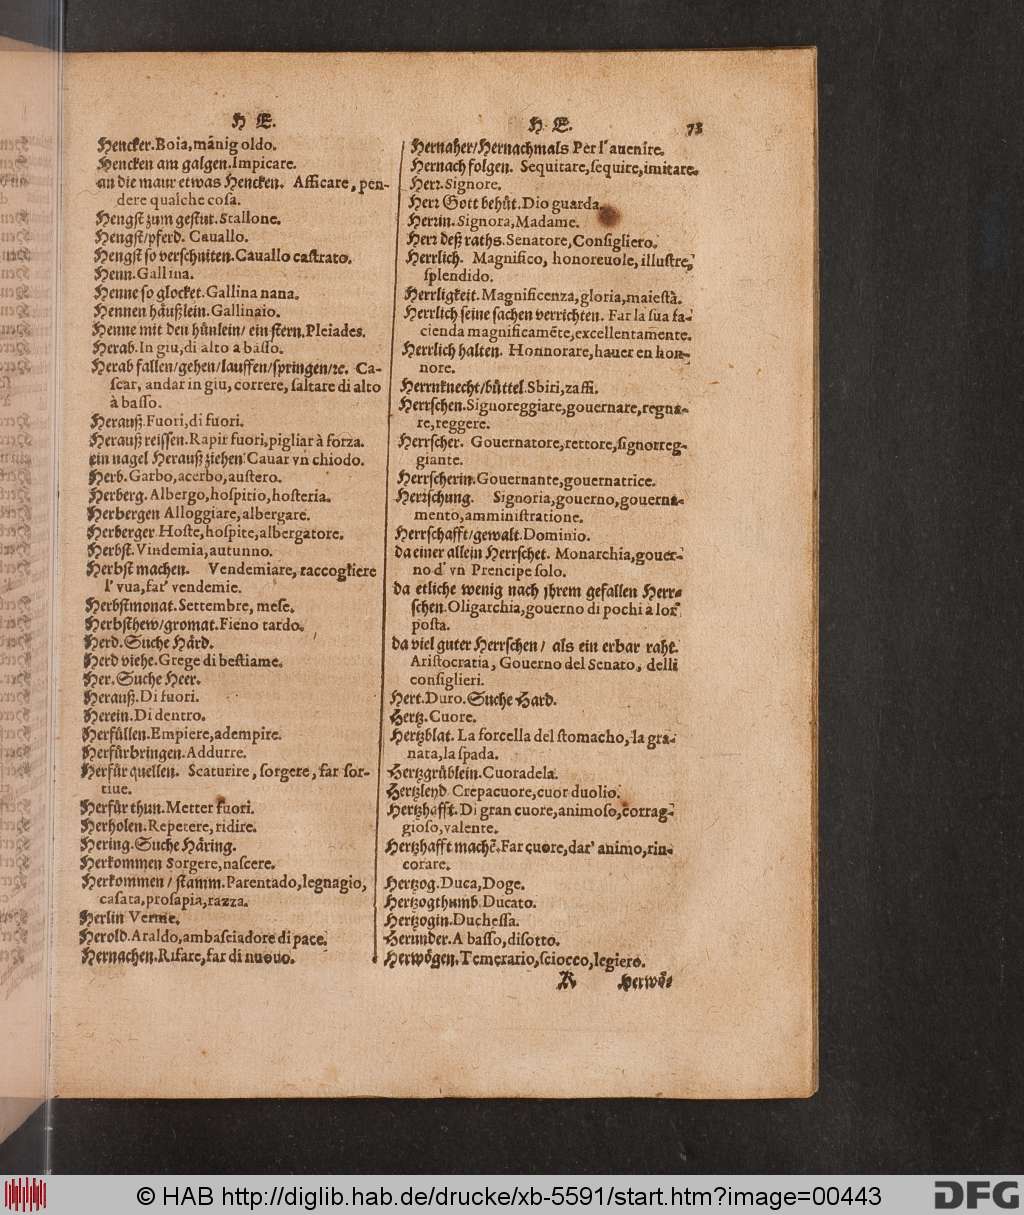 H E.
Hencker. Boia, mánig oldo.
Hencken am galgen. Impicare.
an die maur etwas Hencken. Afficare, pen-
dere qualche cosa.
Hengſt zum geſtut. Stallone.
Hengſt/pferd. Cauallo.
Hengſt ſo verſchniten. Cauallo caſtrato.
Henn. Gallina.
Henne ſo glocket. Gallina nana.
Hennen häußlein. Gallinaio.
Henne mit den hünlein/ ein ſtern. Pleiades.
Herab. In giu, di alto a baſſo.
Herab fallen/gehen/lauffen/ſpringen/ꝛc. Ca-
ſcar, andar in giu, correre, ſaltare di alto
à baſſo.
Herauß. Fuori, di fuori.
Herauß reiſſen. Rapir fuori, pigliar à forza.
ein nagel Herauß ziehen Cauar vn chiodo.
Herb. Garbo, acerbo, auſtero.
Herberg. Albergo, hoſpitio, hoſteria.
Herbergen Alloggiare, albergare.
Herberger Hoſte, hoſpite, albergatore.
Herbſt. Vindemia, autunno.
Herbſt machen. Vendemiare, raccogliere
l' vua, far' vendemie.
Herbſtmonat. Settembre, meſe.
Herbſthew/gromat. Fieno tardo.
Herd. Suche Härd.
Herd viehe. Grege di beſtiame.
Her. Suche Heer.
Herauß. Di fuori.
Herein. Di dentro.
Herfüllen. Empiere, adempire.
Herfürbringen. Addurre.
Herfür quellen. Scaturire, ſorgere, far ſor-
tiue.
Herfür thun. Metter fuori.
Herholen. Repetere, ridire.
Hering. Suche Häring.
Herkommen Sorgere, naſcere.
Herkommen/ ſtamm. Parentado, legnagio,
caſata, proſapia, razza.
Herlin Verme.
Herold. Araldo, ambaſciadore di pace.
Hernachen. Rifare, far di nuouo.
H E. 73
Hernaher/Hernachmals Per l' auenire.
Hernach folgen. Sequitare, ſequire, imitare.
Herꝛ. Signore.
Herꝛ Gott behüt. Dio guarda.
Herꝛin. Signora, Madame.
Herꝛ deß raths. Senatore, Conſigliero.
Herrlich. Magnifico, honoreuole, illuſtre,
ſplendido.
Herrligkeit. Magnificenza, gloria, maieſtà.
Herrlich ſeine ſachen verrichten. Far la ſua fa-
cienda magnificamēte, excellentamente.
Herrlich halten. Honnorare, hauer en hon-
nore.
Herrnknecht/büttel. Sbiri, zaffi.
Herrſchen. Signoreggiare, gouernare, regna-
re, reggere.
Herrſcher. Gouernatore, rettore, ſignorreg-
giante.
Herrſcherin. Gouernante, gouernatrice.
Herꝛſchung. Signoria, gouerno, gouerna-
mento, amminiſtratione.
Herrſchafft/gewalt. Dominio.
da einer allein Herrſchet. Monarchia, gouer-
no d' vn Prencipe ſolo.
da etliche wenig nach jhrem gefallen Herr-
ſchen. Oligarchia, gouerno di pochi a lor
poſta.
da viel guter Herrſchen/ als ein erbar raht.
Ariſtocratia, Gouerno del Senato, delli
conſiglieri.
Hert. Duro. Suche Hard.
Hertz. Cuore.
Hertzblat. La forcella del ſtomacho, la gra-
nata, la ſpada.
Hertzgrüblein. Cuoradela.
Hertzleyd Crepacuore, cuor duolio.
Hertzhafft. Di gran cuore, animoſo, corrag-
gioſo, valente.
Hertzhafft machē. Far cuore, dar' animo, rin-
corare.
Hertzog. Duca, Doge.
Hertzogthumb. Ducato.
Hertzogin. Ducheſſa.
Herunder. A baſſo, diſotto.
Herwögen. Temerario, ſciocco, legiero.
K Herwö-
© HAB http://diglib.hab.de/drucke/xb-5591/start.htm?image=00443
DFG